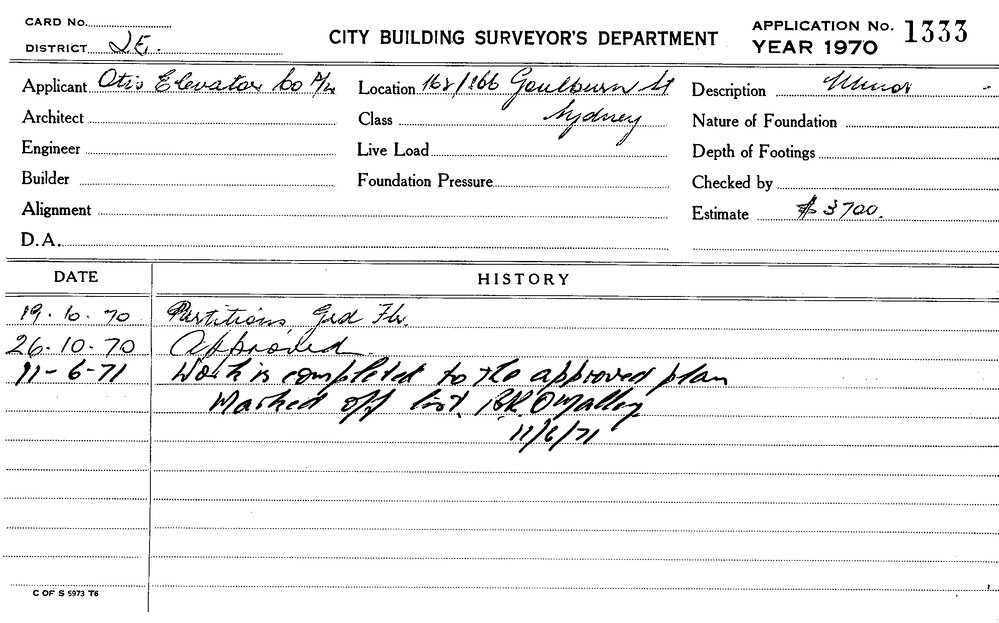 CARD No.
DISTRICT
CITY BUILDING SURVEYOR'S DEPARTMENT
APPLICATION No. 1333
YEAR 1970
Applicant Otis Elevator Co P/L Location Goulburn St Description Minor
Architect Class Sydney Nature of Foundation
Engineer Live Load Depth of Footings
Builder Foundation Pressure Checked by
Alignment Estimate $3700.
D.A.
DATE HISTORY
19.10.70 Partitions Grd Flr.
26-10-70 Approved.
11-6-71 Work is completed to the approved plan
Marked off list. B.R. O'Malley
11/6/71
C OF S 5973 T6